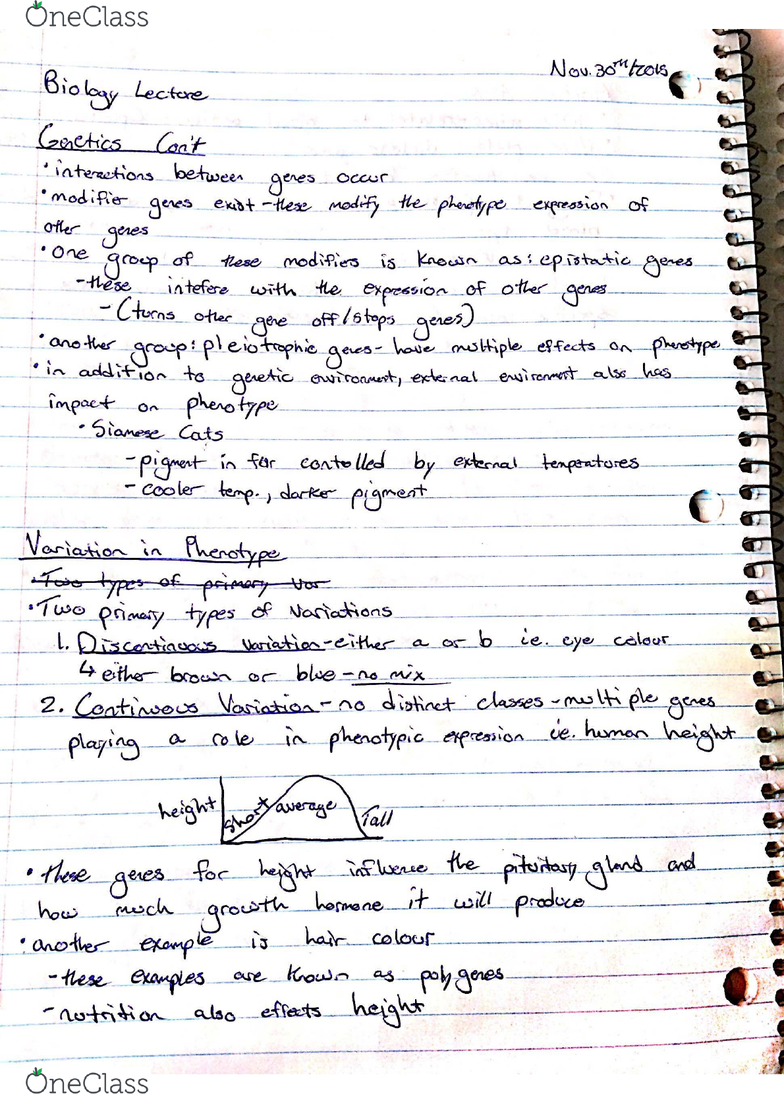 OneClass
Nov. 30TH/2015
Biology Lecture
Genetics Con't
• interactions between genes occur
• modifier genes exist - these modify the phenotype expression of
other genes
• One group of these modifies is known as: epistatic genes
- these intefere with the expression of other genes
- (turns other gene off/stops genes)
• another group: pleiotrophic genes - have multiple effects on phenotype
• in addition to genetic environment, external environment also has
impact on phenotype
• Siamese Cats
- pigment in fur controlled by external temperatures
- cooler temp., darker pigment
Variation in Phenotype
• Two types of primary Var
• Two primary types of Variations
1. Discontinuous variation - either a or b ie. eye colour
↳ either brown or blue - no mix
2. Continuous Variation - no distinct classes - multiple genes
playing a role in phenotypic expression ie. human height
height short average Tall
• these genes for height influence the pituitary gland and
how much growth hormone it will produce
• another example is hair colour
- these examples are known as polygenes
- nutrition also effects height
OneClass